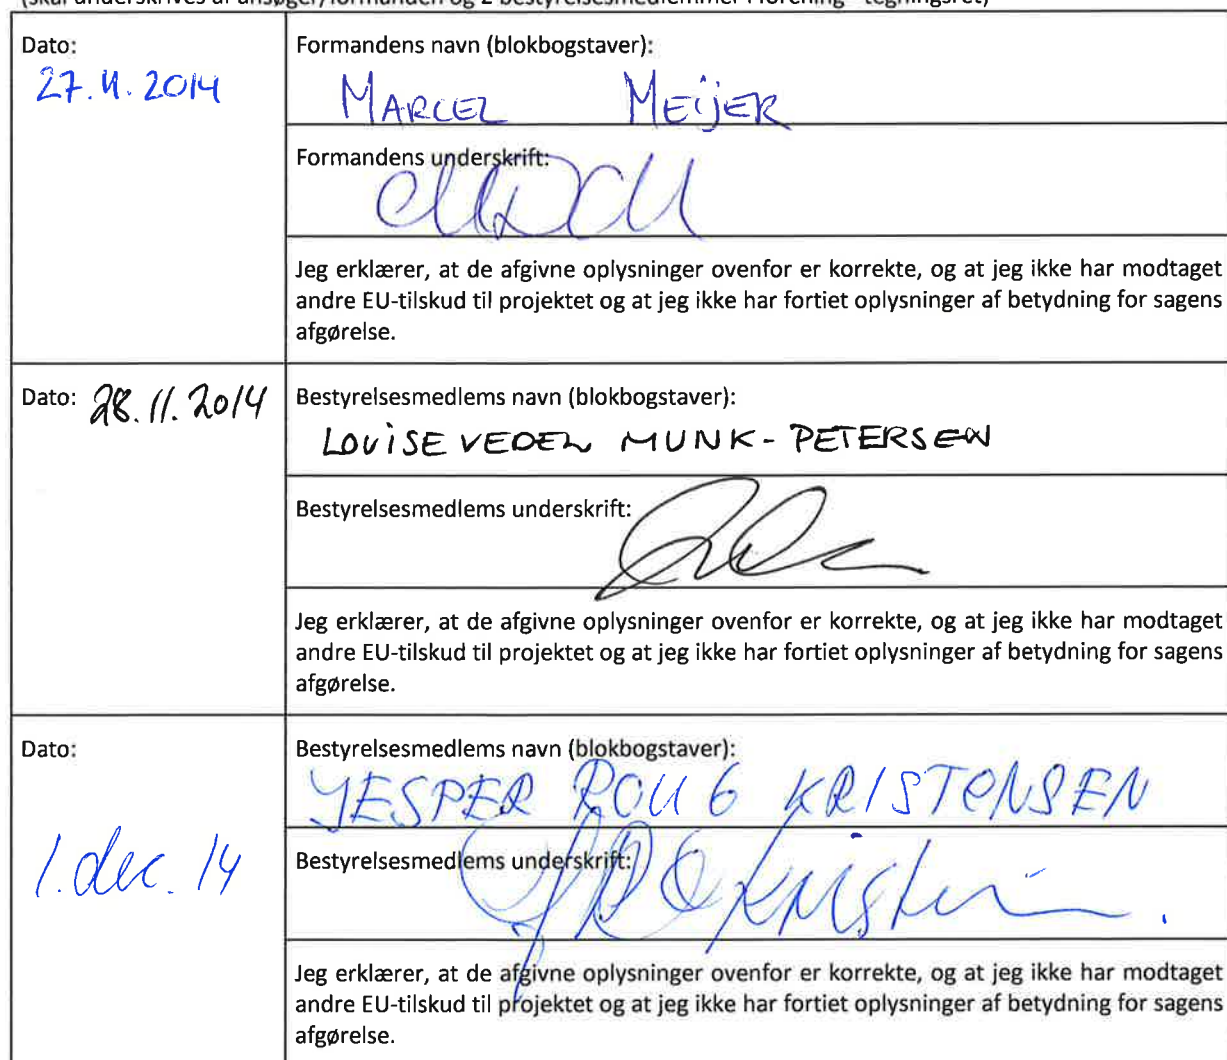 (skal underskrives af ansøger/formanden og 2 bestyrelsesmedlemmer i forening - tegningsret)
Dato:
27.11.2014
Formandens navn (blokbogstaver):
MARCEL MEIJER
Formandens underskrift:
Jeg erklærer, at de afgivne oplysninger ovenfor er korrekte, og at jeg ikke har modtaget
andre EU-tilskud til projektet og at jeg ikke har fortiet oplysninger af betydning for sagens
afgørelse.
Dato: 28.11.2014
Bestyrelsesmedlems navn (blokbogstaver):
LOUISE VEDEL MUNK-PETERSEN
Bestyrelsesmedlems underskrift:
Jeg erklærer, at de afgivne oplysninger ovenfor er korrekte, og at jeg ikke har modtaget
andre EU-tilskud til projektet og at jeg ikke har fortiet oplysninger af betydning for sagens
afgørelse.
Dato:
1. dec. 14
Bestyrelsesmedlems navn (blokbogstaver):
JESPER ROUG KRISTENSEN
Bestyrelsesmedlems underskrift:
Jeg erklærer, at de afgivne oplysninger ovenfor er korrekte, og at jeg ikke har modtaget
andre EU-tilskud til projektet og at jeg ikke har fortiet oplysninger af betydning for sagens
afgørelse.